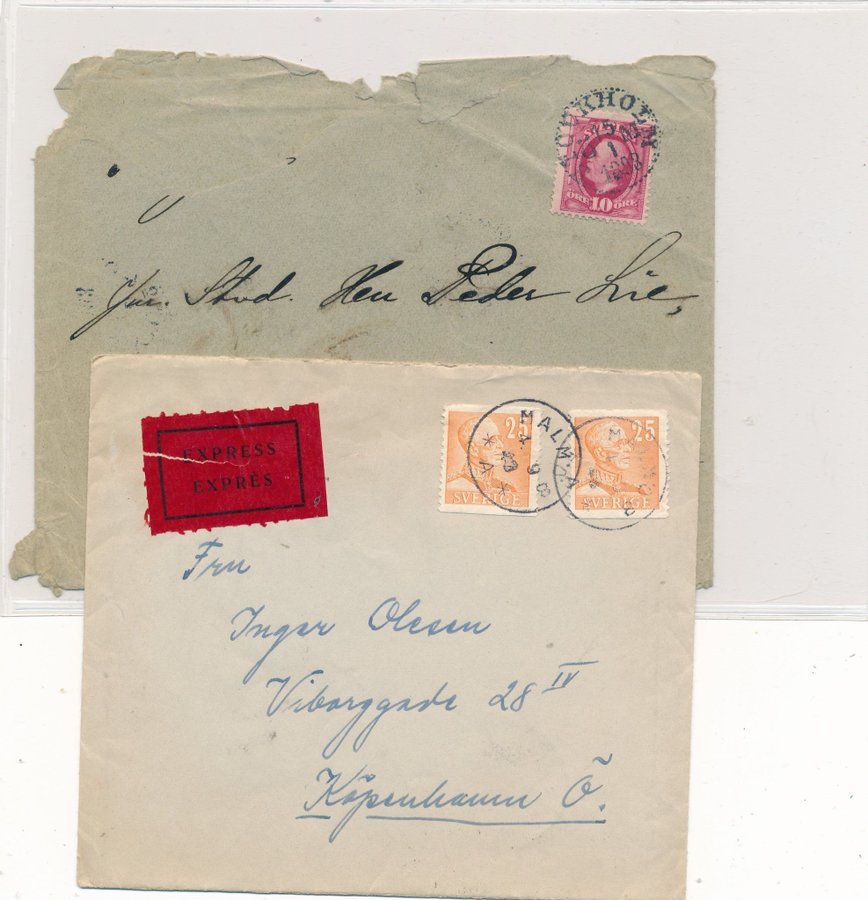 STOCKHOLM
1
10
ÖRE ÖRE
Jur. Stud. Herr Peder Lie,
EXPRESS
EXPRÈS
25
SVERIGE
MALMÖ
A
25
SVERIGE
MALMÖ
Fru
Inger Olesen
Viborggade 28 IV
Köpenhamn Ö.